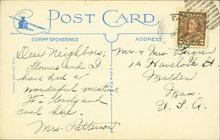 POST CARD
CORRESPONDENCE
ADDRESS
Dear Neighbors;
and I
have had a
wonderful
It's lovely and
cool here.
Mrs. Patterson
Mr. & Mrs.
12 Havelock St
Malden
Mass.
U.S.A.